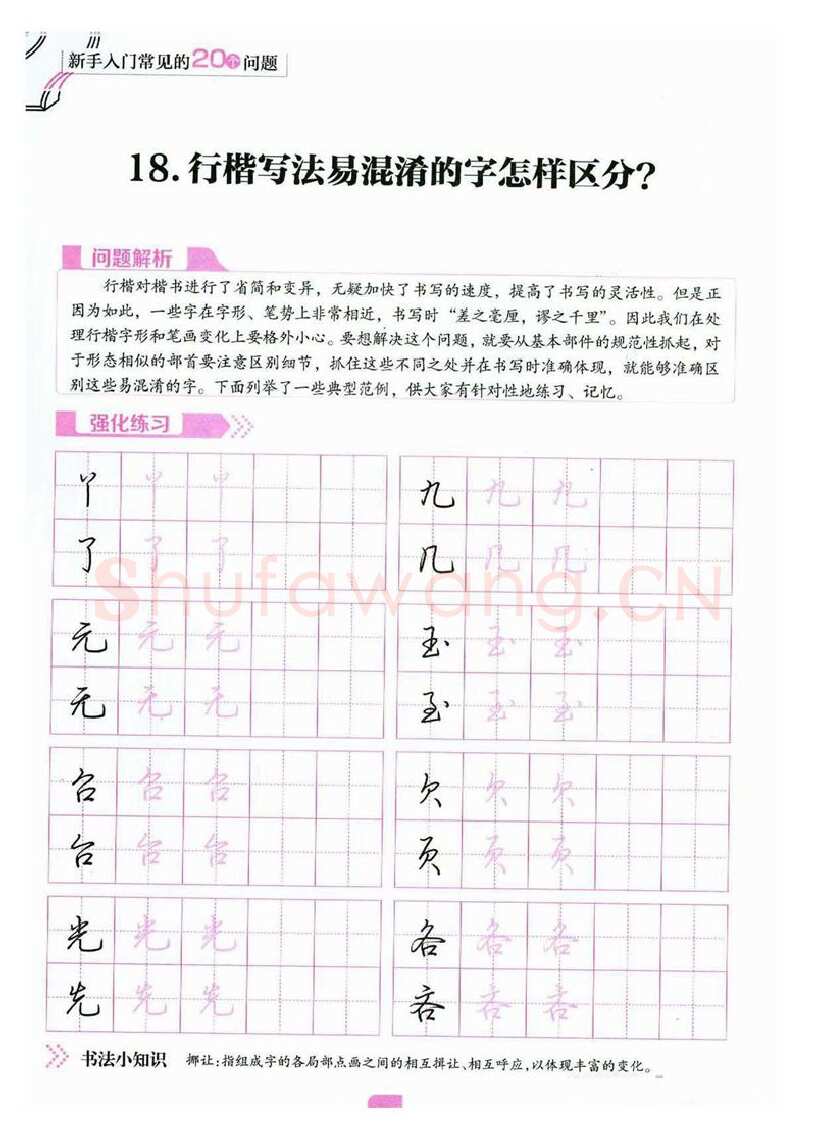 新手入门常见的20个问题
18.行楷写法易混淆的字怎样区分?
问题解析
行楷对楷书进行了省简和变异，无疑加快了书写的速度，提高了书写的灵活性。但是正
因为如此，一些字在字形、笔势上非常相近，书写时“差之毫厘，谬之千里”。因此我们在处
理行楷字形和笔画变化上要格外小心。要想解决这个问题，就要从基本部件的规范性抓起，对
于形态相似的部首要注意区别细节，抓住这些不同之处并在书写时准确体现，就能够准确区
别这些易混淆的字。下面列举了一些典型范例，供大家有针对性地练习、记忆。
强化练习
丫 丫 丫
九 九 九
了 了 了
几 几 几
Shufawang.CN
元 元 元
玉 玉 玉
无 无 无
至 至 至
召 召 召
欠 欠 欠
台 台 台
页 页 页
光 光 光
各 各 各
先 先 先
吝 吝 吝
书法小知识 挪让:指组成字的各局部点画之间的相互揖让、相互呼应,以体现丰富的变化。